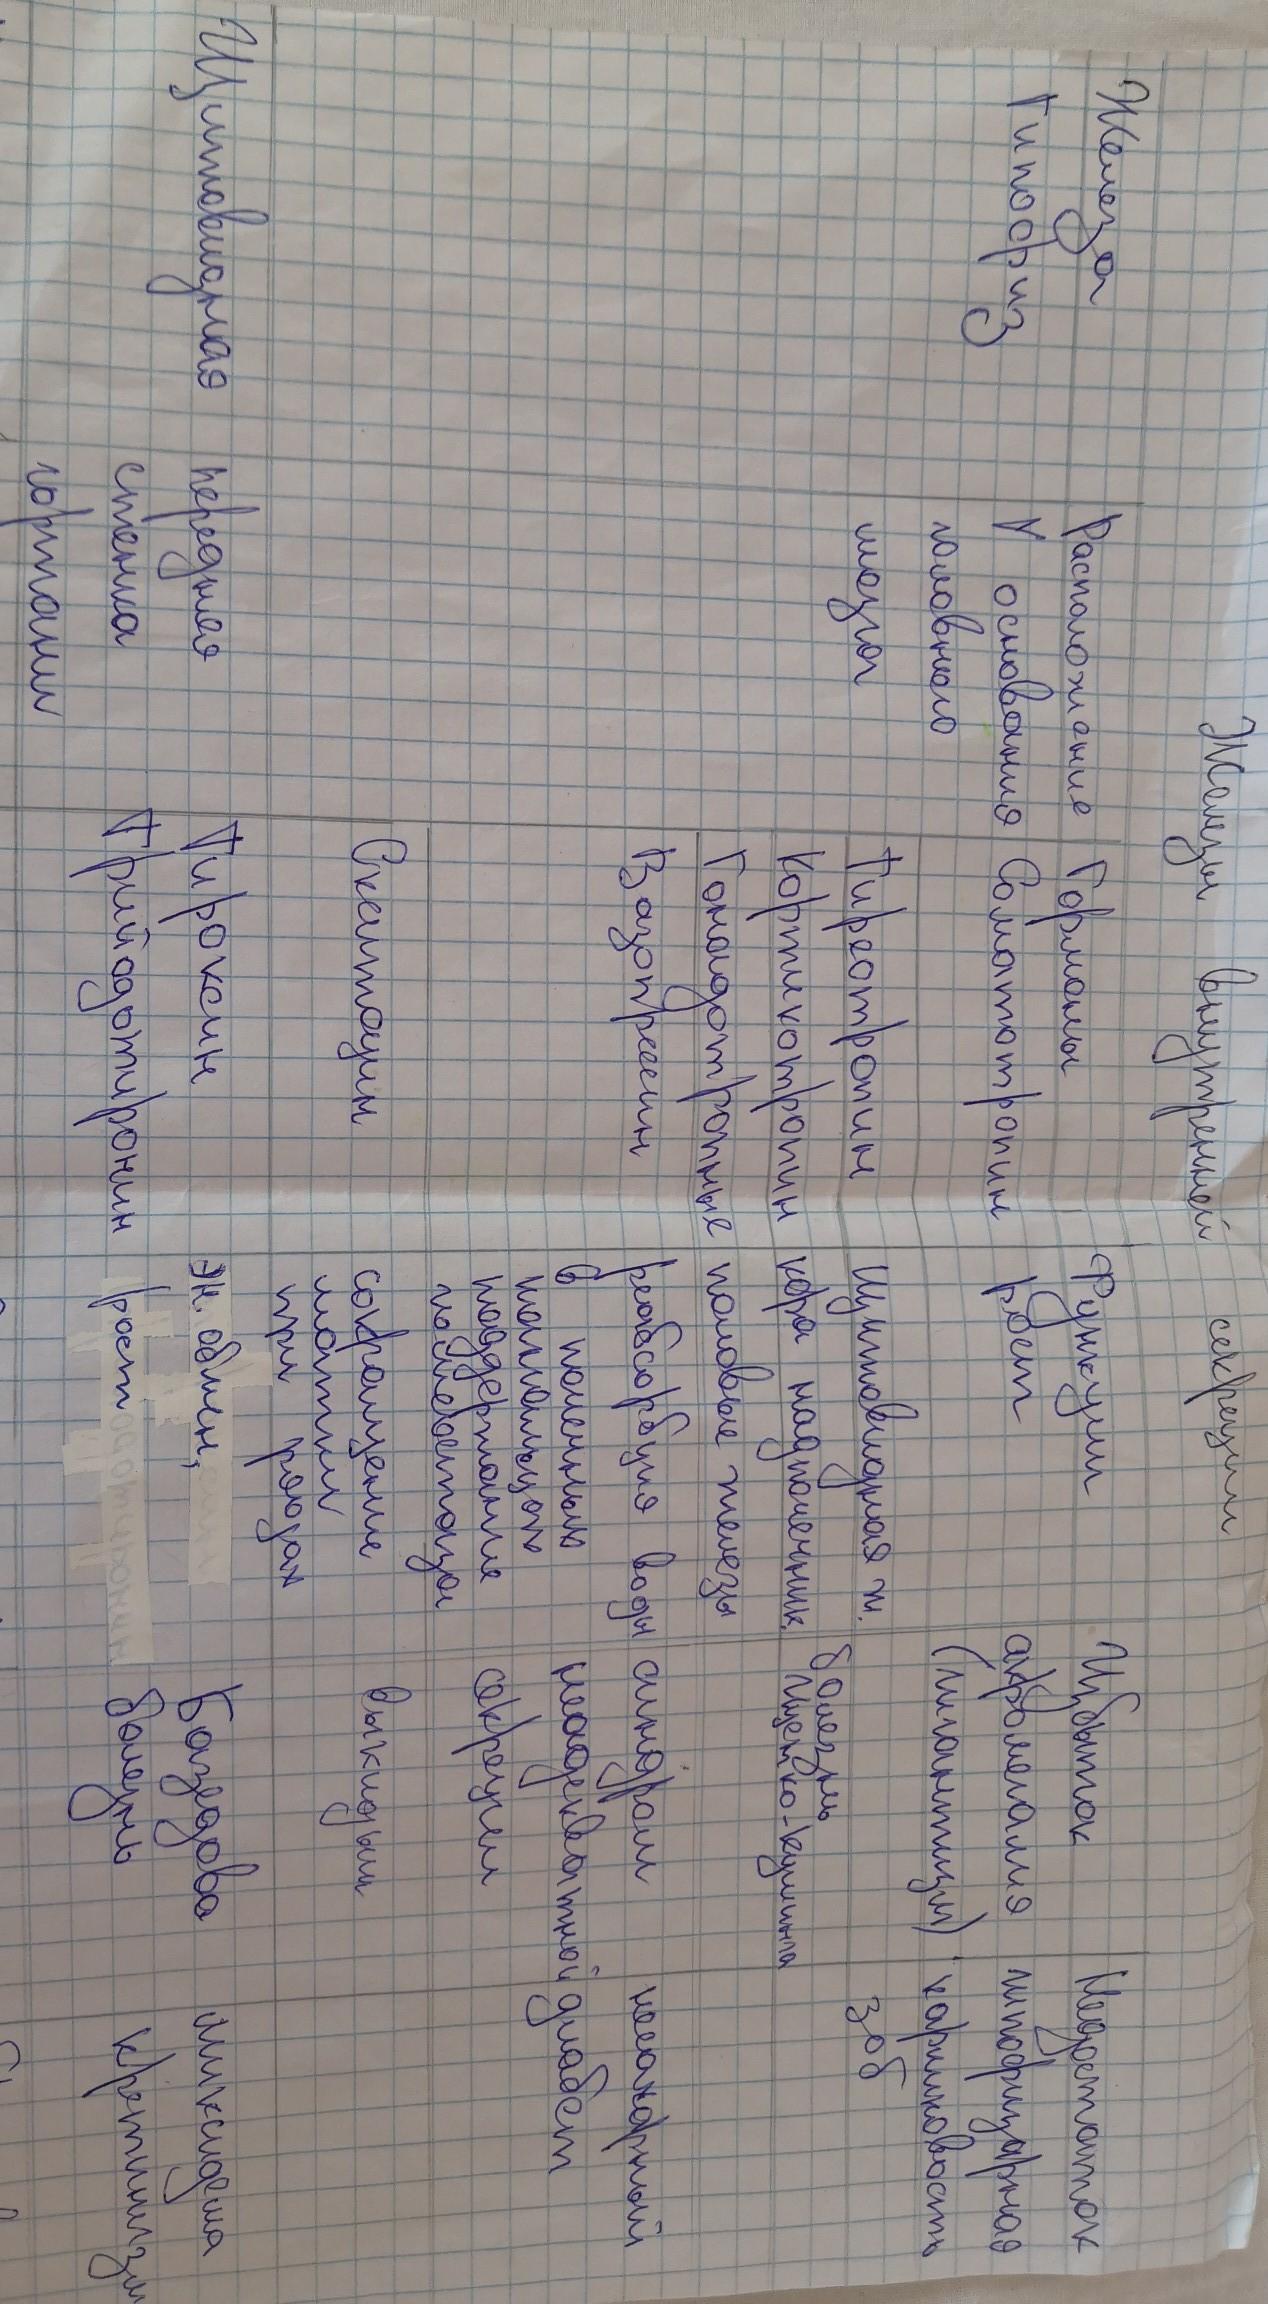 Железы внутренней секреции
Железа Расположение Гормоны Функции Избыток Недостаток
Гипофиз У основания Соматотропин рост акромегалия гипофизарная
головного (гигантизм) карликовость
мозга Тиреотропин Щитовидная ж. зоб
Кортикотропин кора надпочечник. болезнь
Иценко-Кушинга
Гонадотропные половые железы
Вазопрессин реабсорбция воды синдром несахарный
в почечных неадекватной диабет
канальцах
поддержание секреции
гомеостаза
Окситоцин сокращение выкидыш
матки
при родах
Щитовидная передняя Тироксин эн. обмен, Базедова микседема
стенка Трийодотиронин рост болезнь кретинизм
гортани